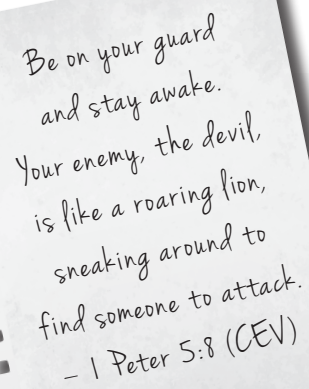 Be on your guard
and stay awake.
Your enemy, the devil,
is like a roaring lion,
sneaking around to
find someone to attack.
– 1 Peter 5:8 (CEV)